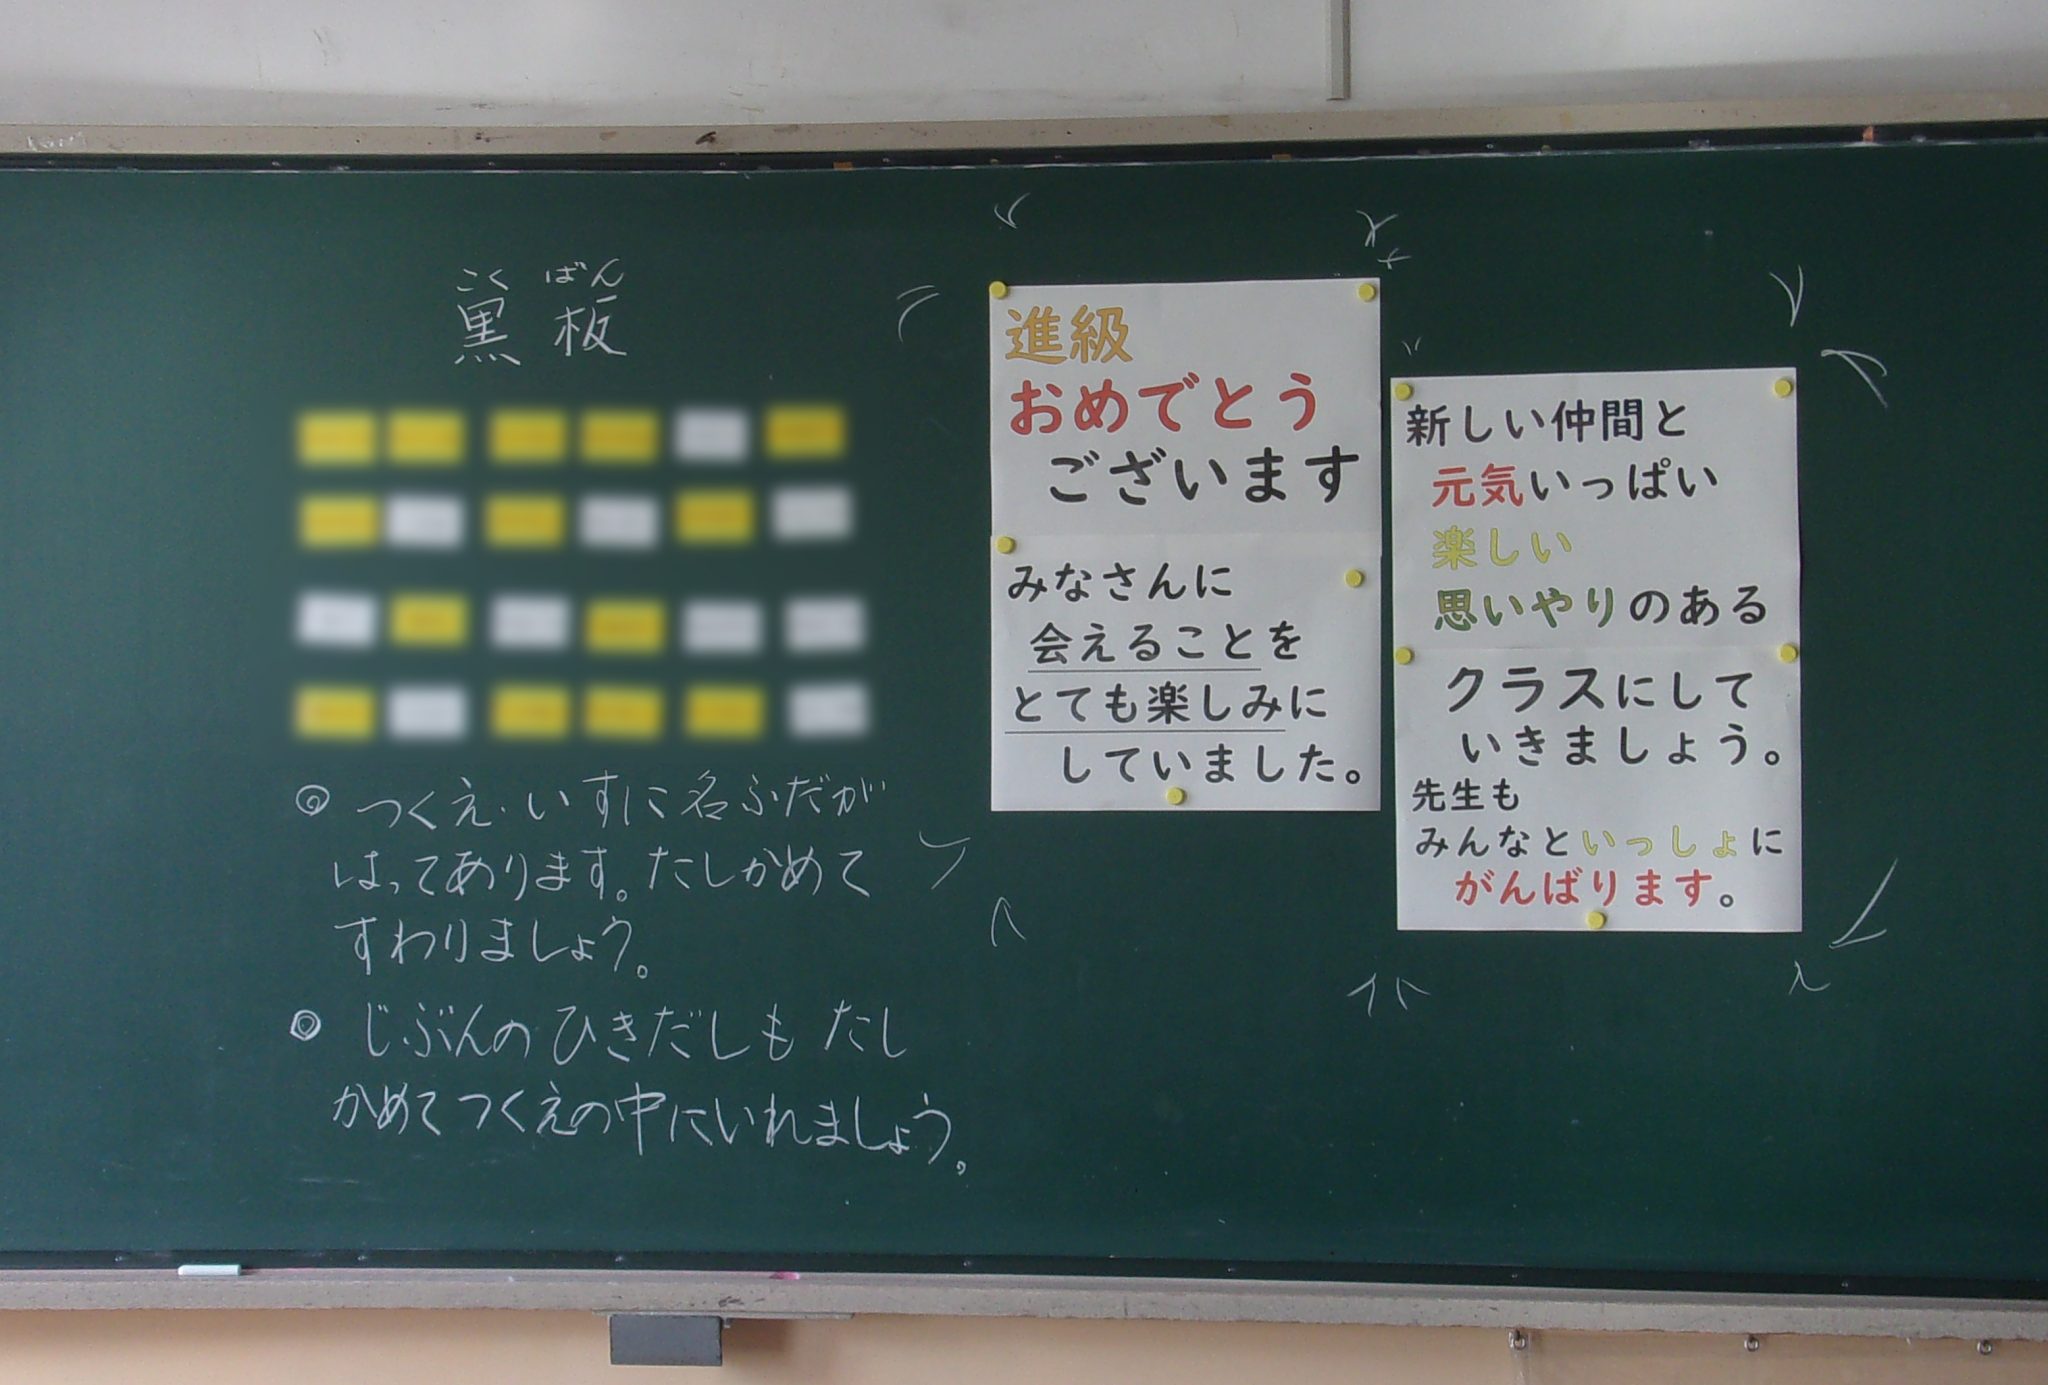 こくばん
黒板
◎ つくえ・いすに名ふだが
はってあります。たしかめて
すわりましょう。
◎ じぶんのひきだしも たし
かめてつくえの中にいれましょう。
進級
おめでとう
ございます
みなさんに
会えることを
とても楽しみに
していました。
新しい仲間と
元気いっぱい
楽しい
思いやりのある
クラスにして
いきましょう。
先生も
みんなといっしょに
がんばります。